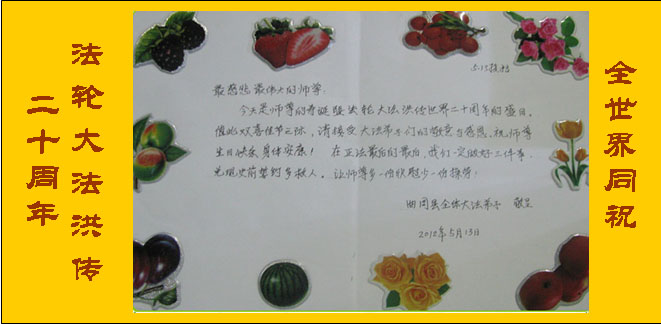 法轮大法洪传
二十周年
最慈悲最伟大的师尊:
今天是师尊的寿诞暨法轮大法洪传世界二十周年的盛日。
值此双喜佳节之际,请接受大法弟子们的敬意与感恩,祝师尊
生日快乐身体安康!在正法最后的最后,我们一定做好三件事,
兑现史前誓约多救人。让师尊多一份欣慰少一份操劳!
曲周县全体大法弟子 敬呈
2012年5月13日
全世界同祝